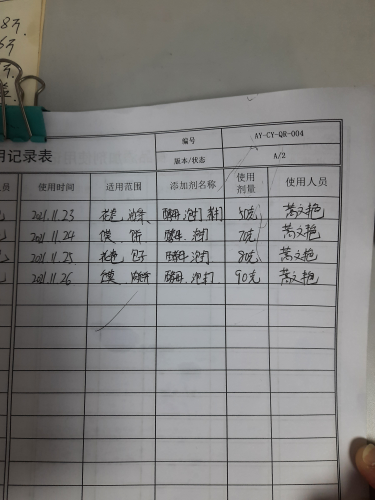 8斤
6斤
斤
用记录表
编号 AY-CY-QR-004
版本/状态 A/2
员 使用时间 适用范围 添加剂名称 使用剂量 使用人员
2021.11.23 花卷 油条 酵母 泡打 50克
2021.11.24 馍 饼 酵母 泡打 70克
2021.11.25 花卷 包子 酵母 泡打 80克
2021.11.26 馍 酵母 泡打 90克